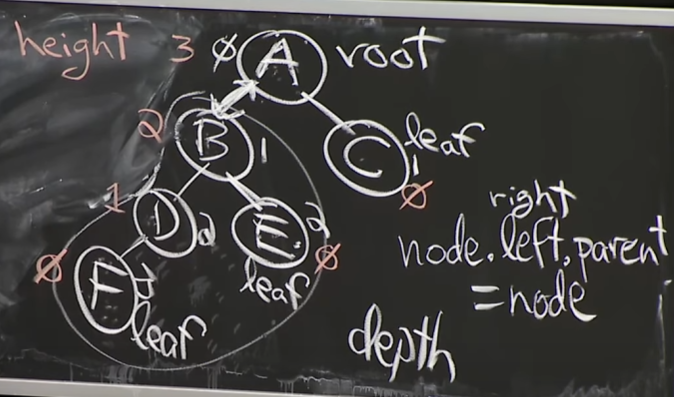 height 3 ∅ A root
2 B 1 C leaf
1 ∅
1 D 2 E 2 ∅
right
node.left.parent
= node
∅ F 3 leaf
leaf
depth